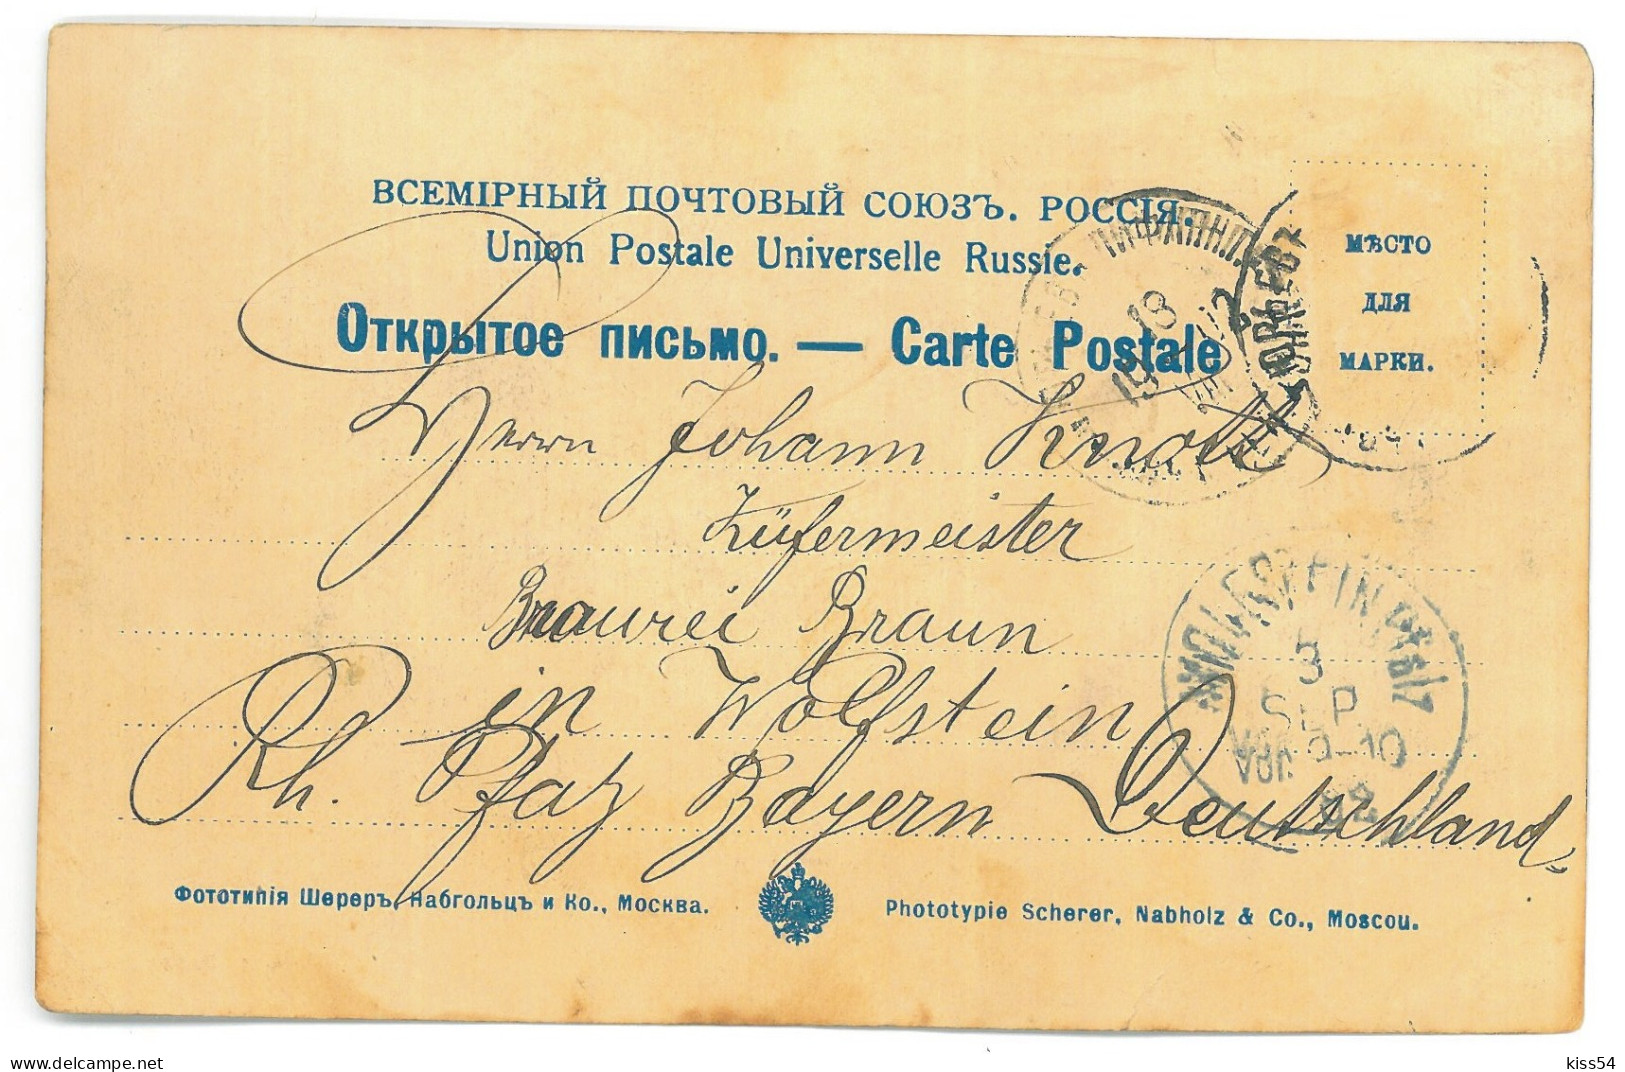 ВСЕМІРНЫЙ ПОЧТОВЫЙ СОЮЗЪ. РОССІЯ.
Union Postale Universelle Russie.
Открытое письмо. — Carte Postale
МѢСТО
ДЛЯ
МАРКИ.
ЮРЬЕВЪ
18
19
Herrn Johann Knoll
Küfermeister
Braurei Braun
in Wolfstein
Rh. Pfalz Bayern Deutschland
WOLFSTEIN PFALZ
5
SEP
VOR. 9-10
02
Фототипія Шереръ, Набгольцъ и Ко., Москва.
Phototypie Scherer, Nabholz & Co., Moscou.
kiss54